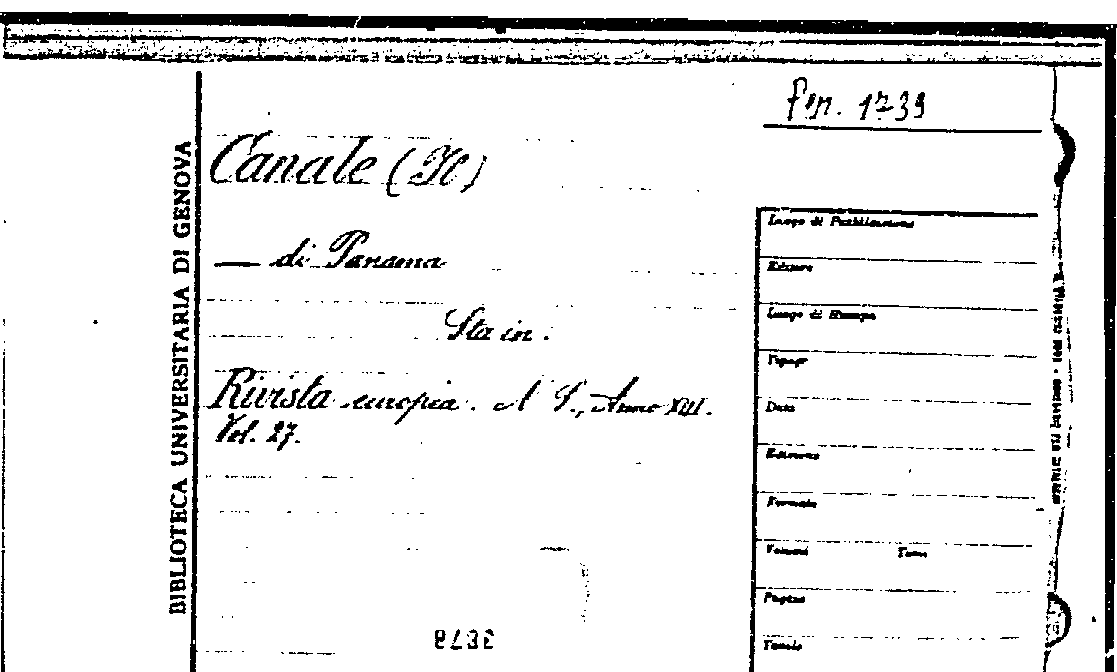 Per. 1739
BIBLIOTECA UNIVERSITARIA DI GENOVA
Canale (Il)
— di Panama
Sta in:
Rivista europea. N S., Anno XIII.
Vol. 27.
Luogo di Pubblicazione
Editore
Luogo di Stampa
Tipogr
Data
Edizione
Formato
Volumi Tomi
Pagine
Tavole